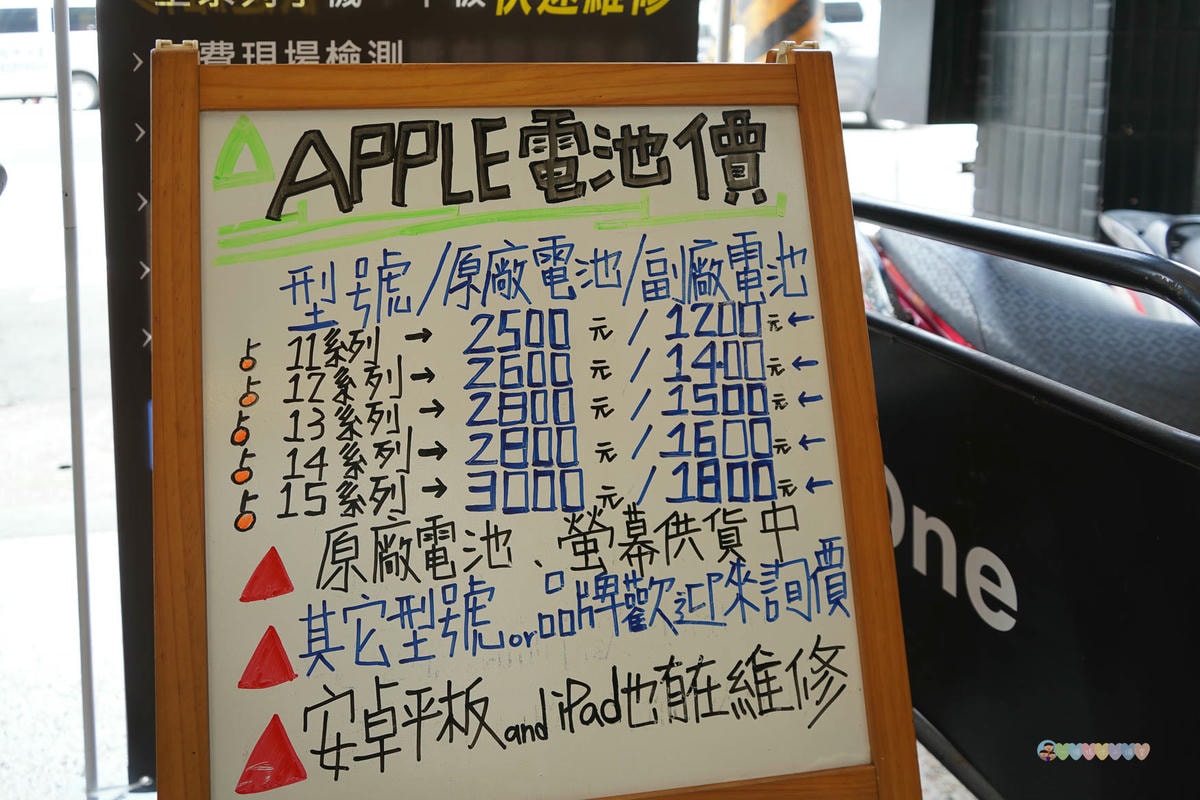 全系列手機、平板快速維修
費現場檢測
APPLE電池價
型號/原廠電池/副廠電池
11系列→2500元/1200元←
12系列→2600元/1400元←
13系列→2800元/1500元←
14系列→2800元/1600元←
15系列→3000元/1800元←
原廠電池、螢幕供貨中
其它型號or品牌歡迎來詢價
安卓平板and iPad也有在維修
one